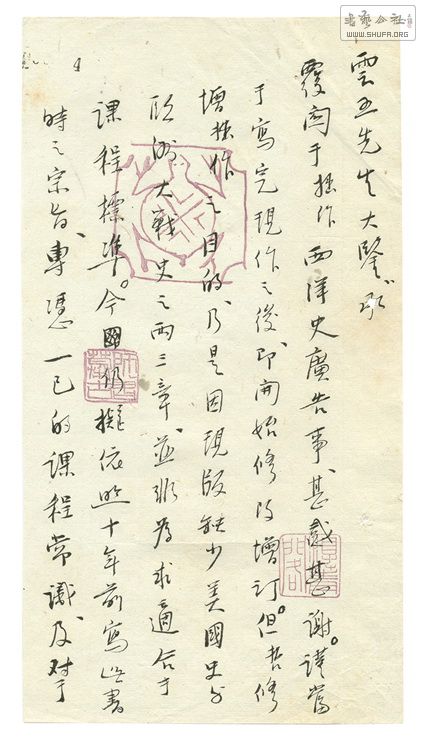 書藝公社
WWW.SHUFA.ORG
4
雲五先生大鑒、承
覆關于拙作西洋史廣告事、甚感甚謝。謹當
于寫完現作之後、即開始修改增訂。但哲修
增拙作之目的、乃是因現版缺少美國史与
歐洲大戰史之兩三章、並非為求適合于
課程標準。今仍擬依照十年前寫此書
時之宗旨、專憑一己的課程常識、及对于